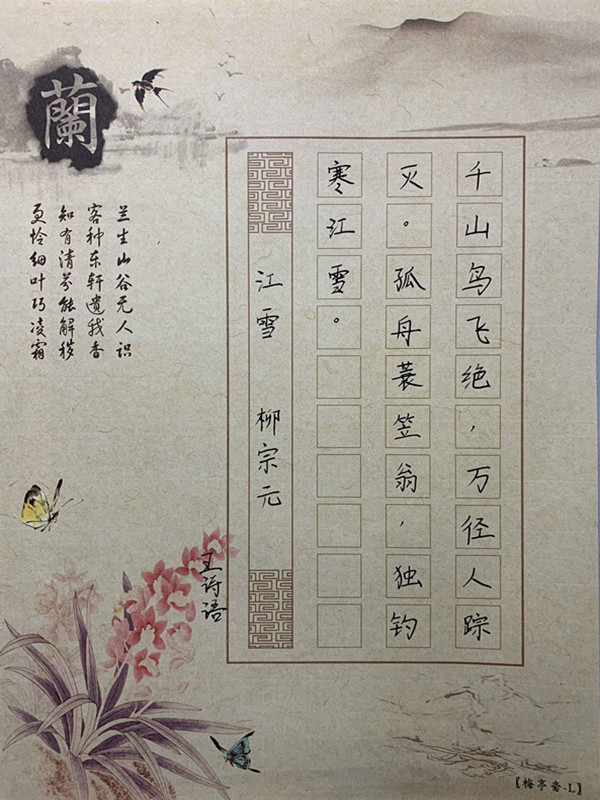 千山鸟飞绝，万径人踪
灭。孤舟蓑笠翁，独钓
寒江雪。
江雪 柳宗元
王诗语
蘭
兰生山谷无人识
客种东轩遗我香
知有清芬能解秽
更怜细叶巧凌霜
【梅亭斋-L】